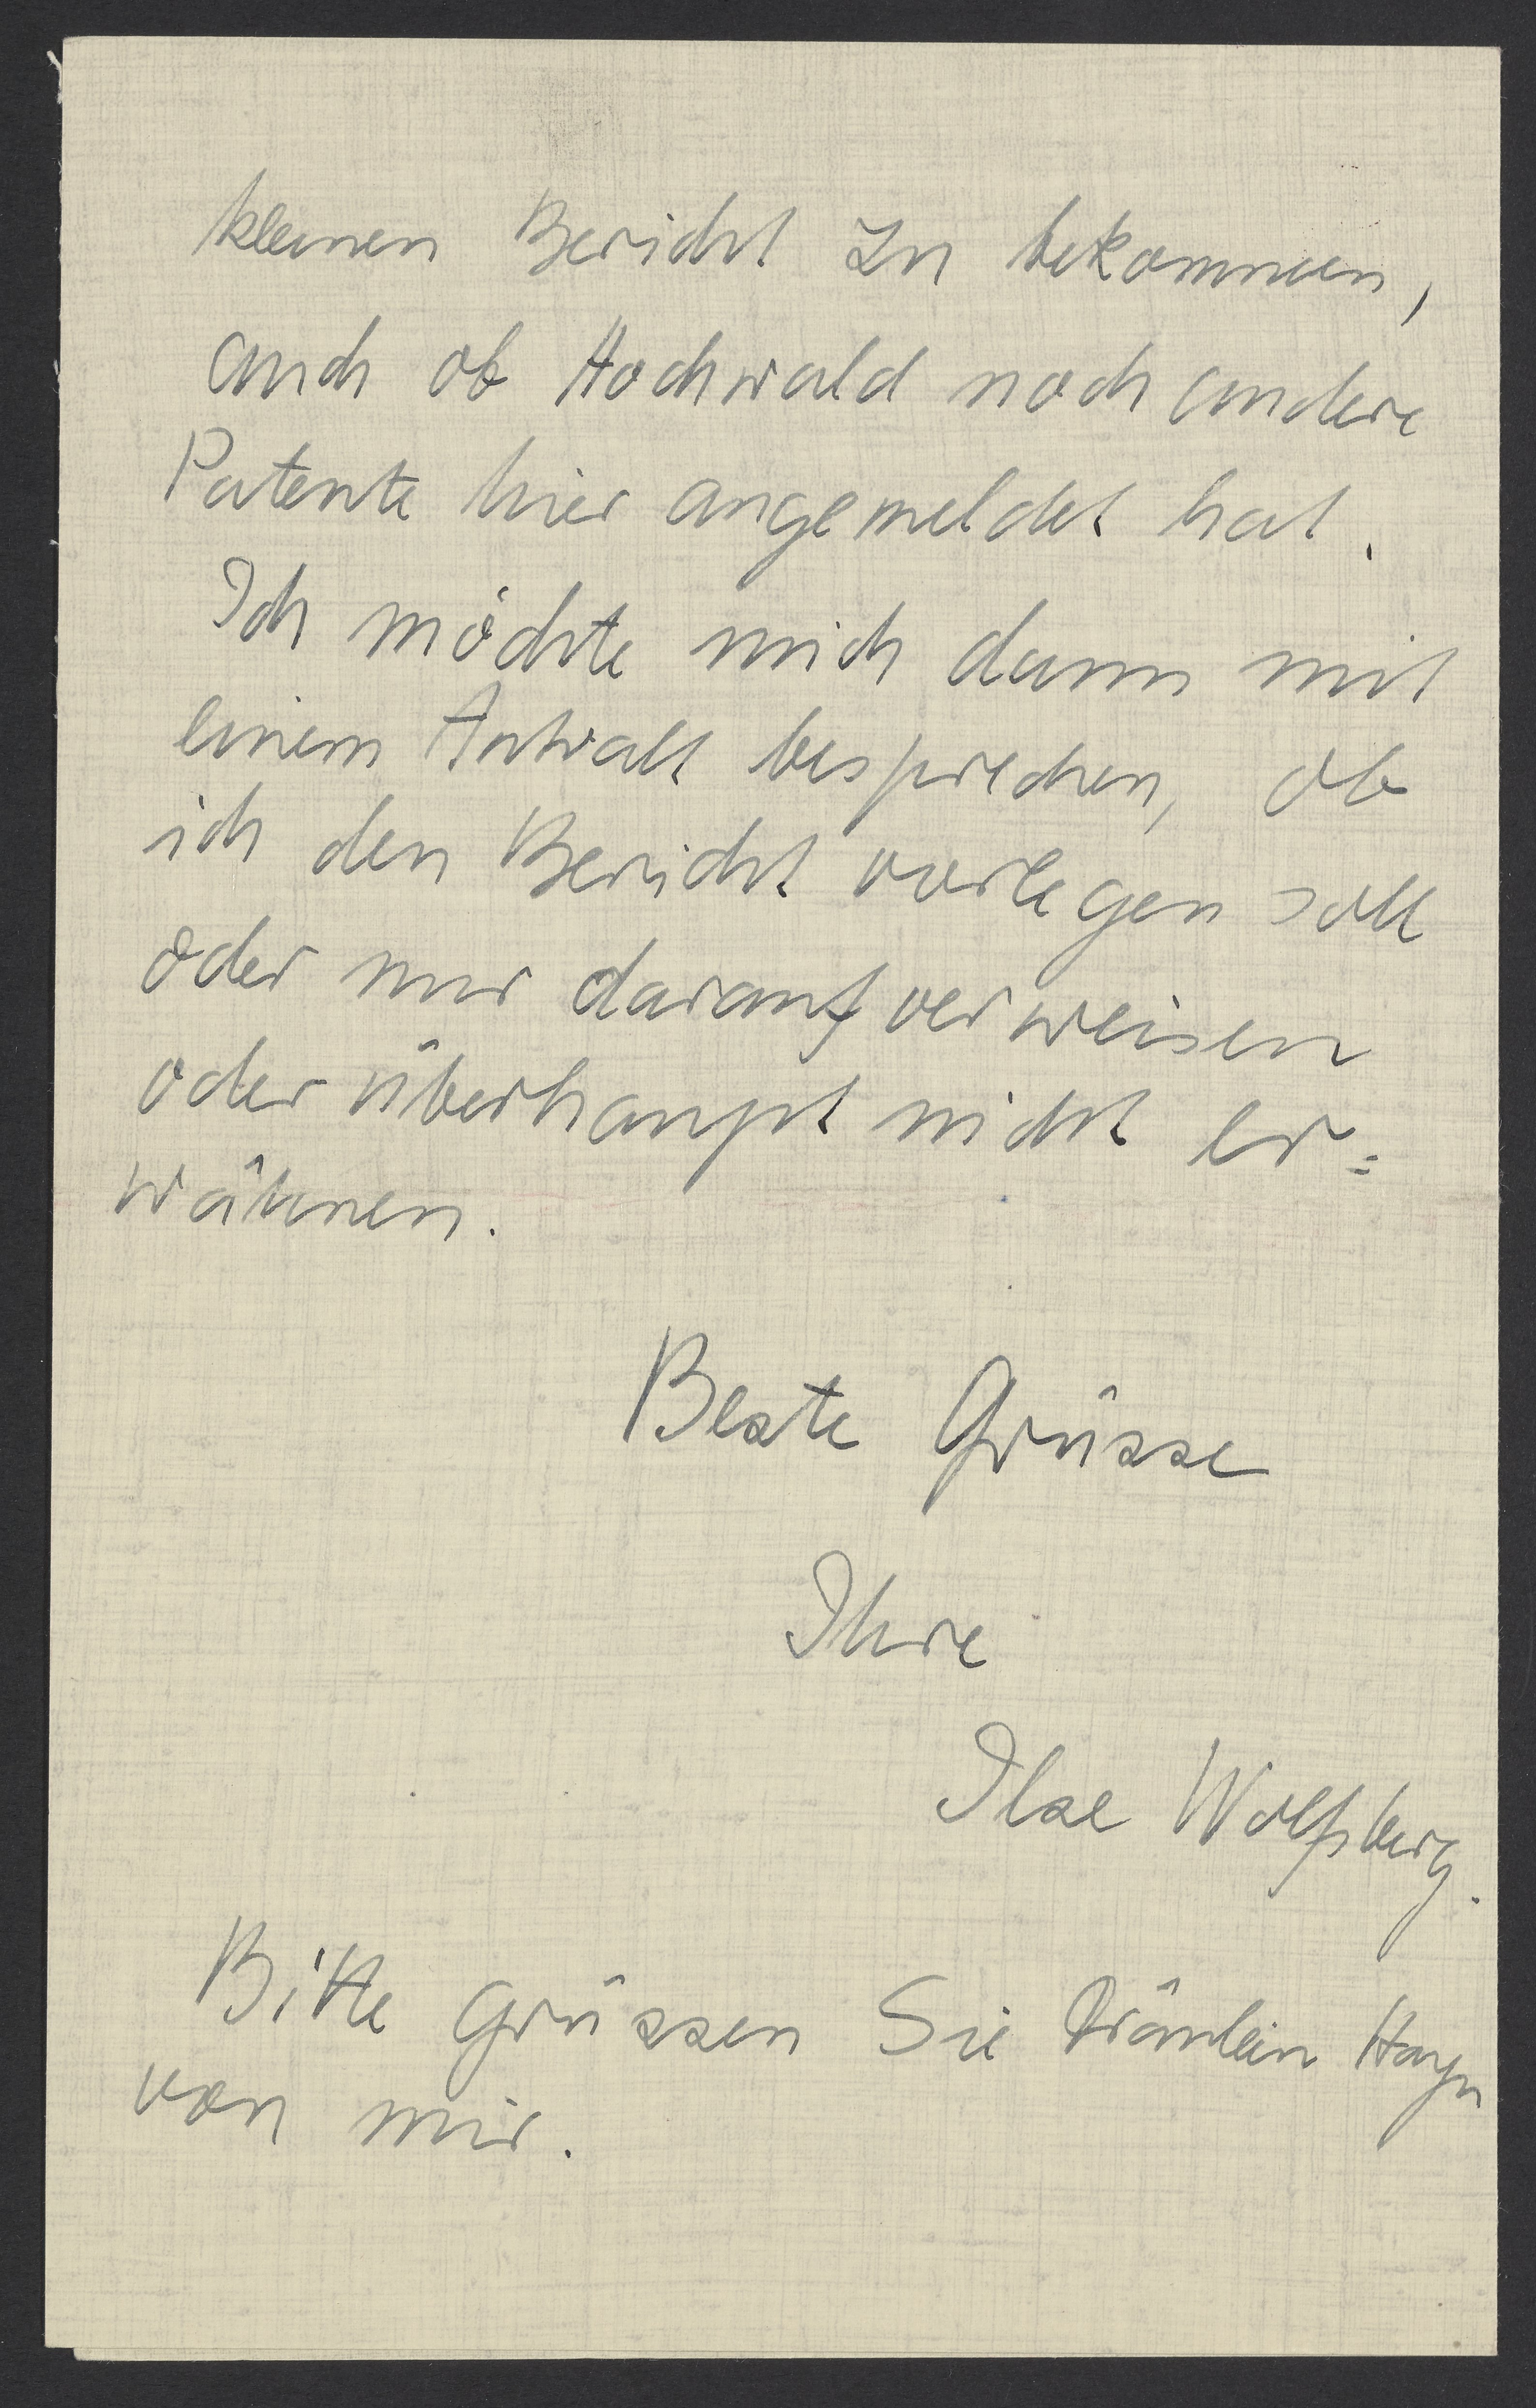 kleinen Bericht zu bekommen,
auch ob Hochwald noch andere
Patente hier angemeldet hat.
Ich möchte mich dann mit
einem Anwalt besprechen, ob
ich den Bericht vorlegen soll
oder nur darauf verweisen
oder überhaupt nicht er=
wähnen.
Beste Grüsse
Ihre
Ilse Wolfsberg.
Bitte grüssen Sie Fräulein Hayn
von mir.